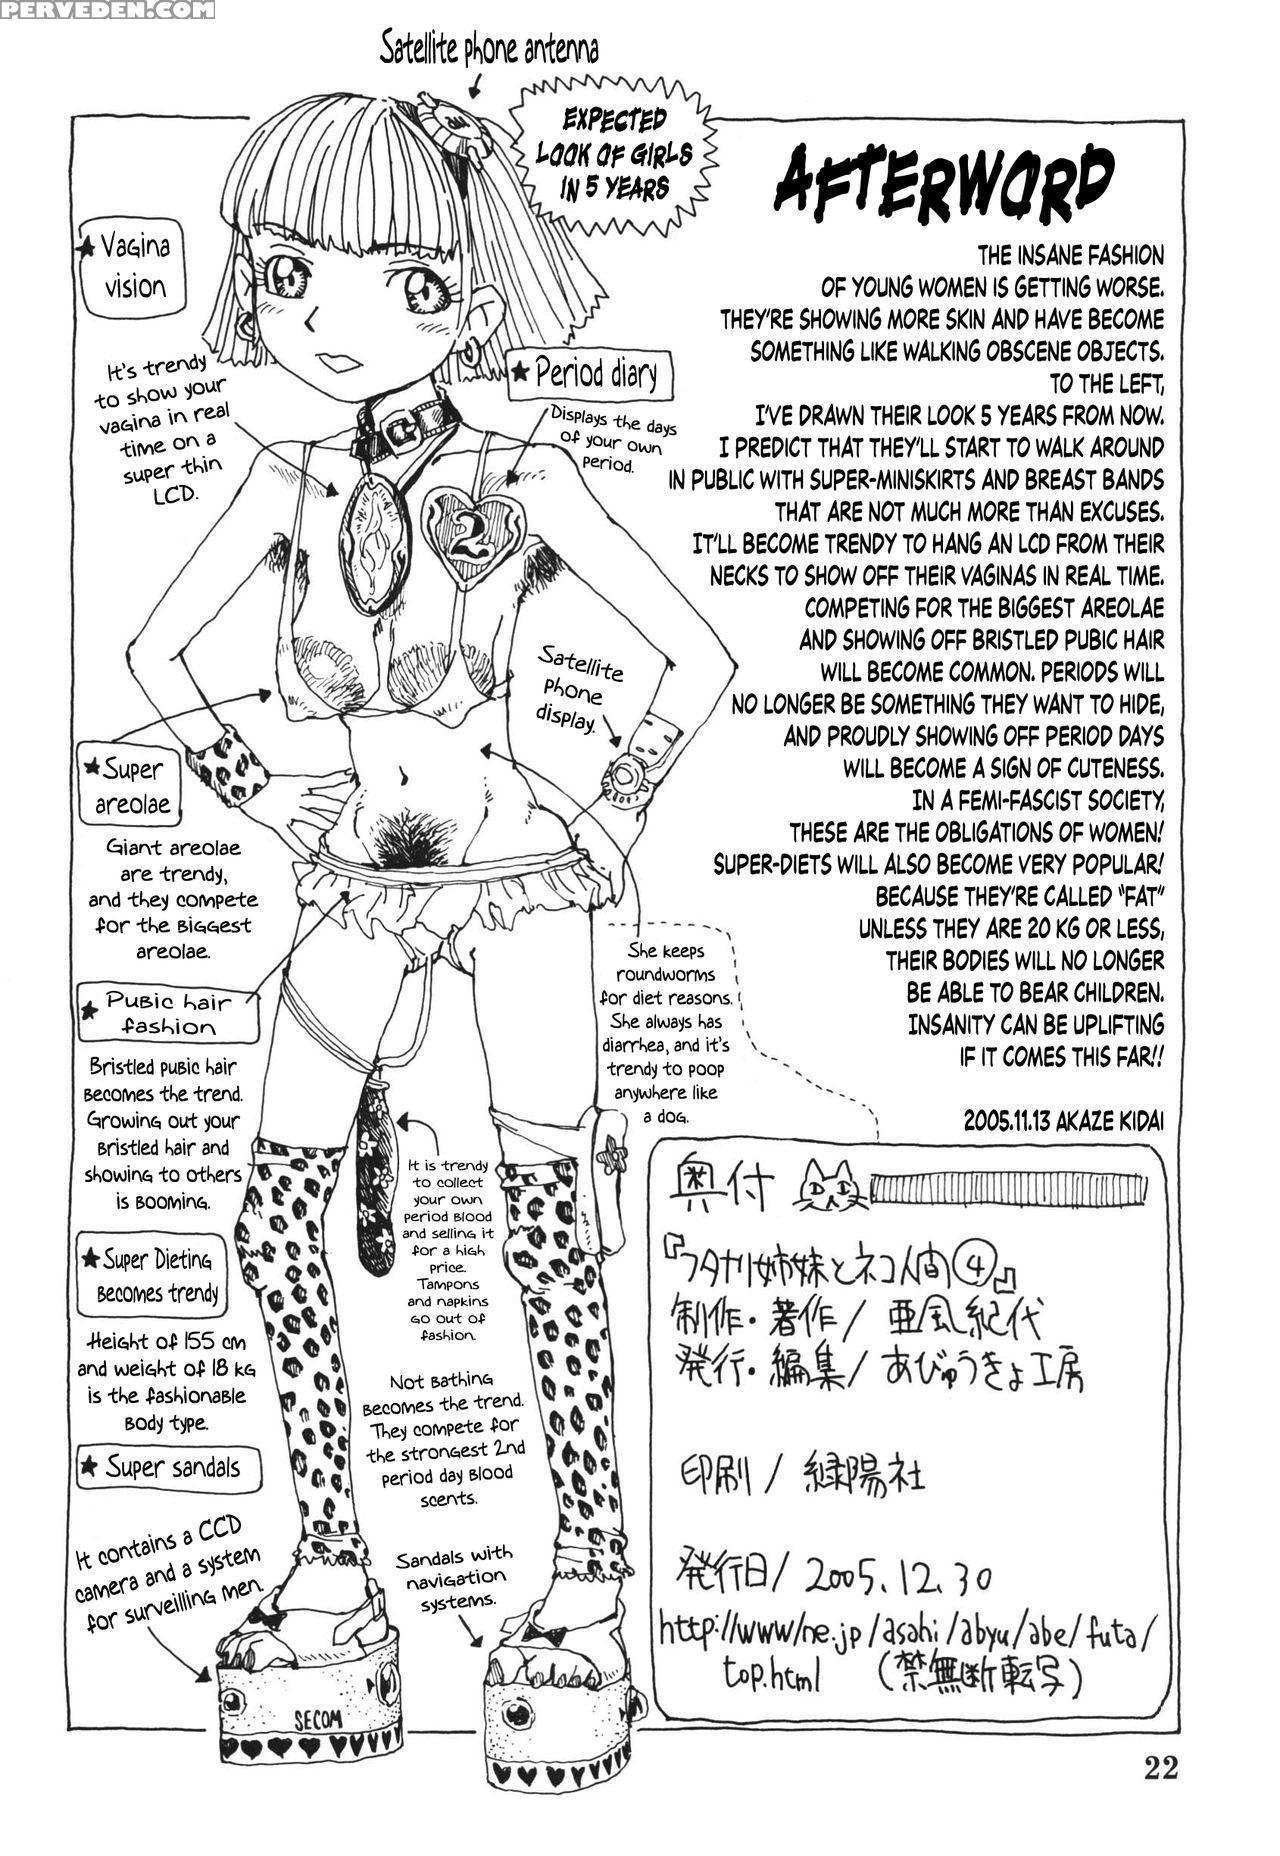 PERVEDEN.COM
Satellite phone antenna
au
EXPECTED
LOOK OF GIRLS
IN 5 YEARS
AFTERWORD
THE INSANE FASHION
OF YOUNG WOMEN IS GETTING WORSE.
THEY'RE SHOWING MORE SKIN AND HAVE BECOME
SOMETHING LIKE WALKING OBSCENE OBJECTS.
TO THE LEFT,
I'VE DRAWN THEIR LOOK 5 YEARS FROM NOW.
I PREDICT THAT THEY'LL START TO WALK AROUND
IN PUBLIC WITH SUPER-MINISKIRTS AND BREAST BANDS
THAT ARE NOT MUCH MORE THAN EXCUSES.
IT'LL BECOME TRENDY TO HANG AN LCD FROM THEIR
NECKS TO SHOW OFF THEIR VAGINAS IN REAL TIME.
COMPETING FOR THE BIGGEST AREOLAE
AND SHOWING OFF BRISTLED PUBIC HAIR
WILL BECOME COMMON. PERIODS WILL
NO LONGER BE SOMETHING THEY WANT TO HIDE,
AND PROUDLY SHOWING OFF PERIOD DAYS
WILL BECOME A SIGN OF CUTENESS.
IN A FEMI-FASCIST SOCIETY,
THESE ARE THE OBLIGATIONS OF WOMEN!
SUPER-DIETS WILL ALSO BECOME VERY POPULAR!
BECAUSE THEY'RE CALLED "FAT"
UNLESS THEY ARE 20 KG OR LESS,
THEIR BODIES WILL NO LONGER
BE ABLE TO BEAR CHILDREN.
INSANITY CAN BE UPLIFTING
IF IT COMES THIS FAR!!
2005.11.13 AKAZE KIDAI
★ Vagina
vision
It's trendy
to show your
vagina in real
time on a
super thin
LCD.
★ Period diary
Displays the days
of your own
period.
2
Satellite
phone
display.
★ Super
areolae
Giant areolae
are trendy,
and they compete
for the biggest
areolae.
★ Pubic hair
fashion
Bristled pubic hair
becomes the trend.
Growing out your
bristled hair and
showing to others
is booming.
She keeps
roundworms
for diet reasons.
She always has
diarrhea, and it's
trendy to poop
anywhere like
a dog.
It is trendy
to collect
your own
period blood
and selling it
for a high
price.
Tampons
and napkins
go out of
fashion.
★ Super Dieting
becomes trendy
Height of 155 cm
and weight of 18 kg
is the fashionable
body type.
Not bathing
becomes the trend.
They compete for
the strongest 2nd
period day blood
scents.
★ Super sandals
It contains a CCD
camera and a system
for surveilling men.
Sandals with
navigation
systems.
SECOM
奥付
『フタナリ姉妹とネコ人間④』
制作・著作/ 亜風紀代
発行・編集/ あびゅうきょ工房
印刷/ 緑陽社
発行日/ 2005.12.30
http://www/ne.jp/asahi/abyu/abe/futa/
top.html (禁無断転写)
22